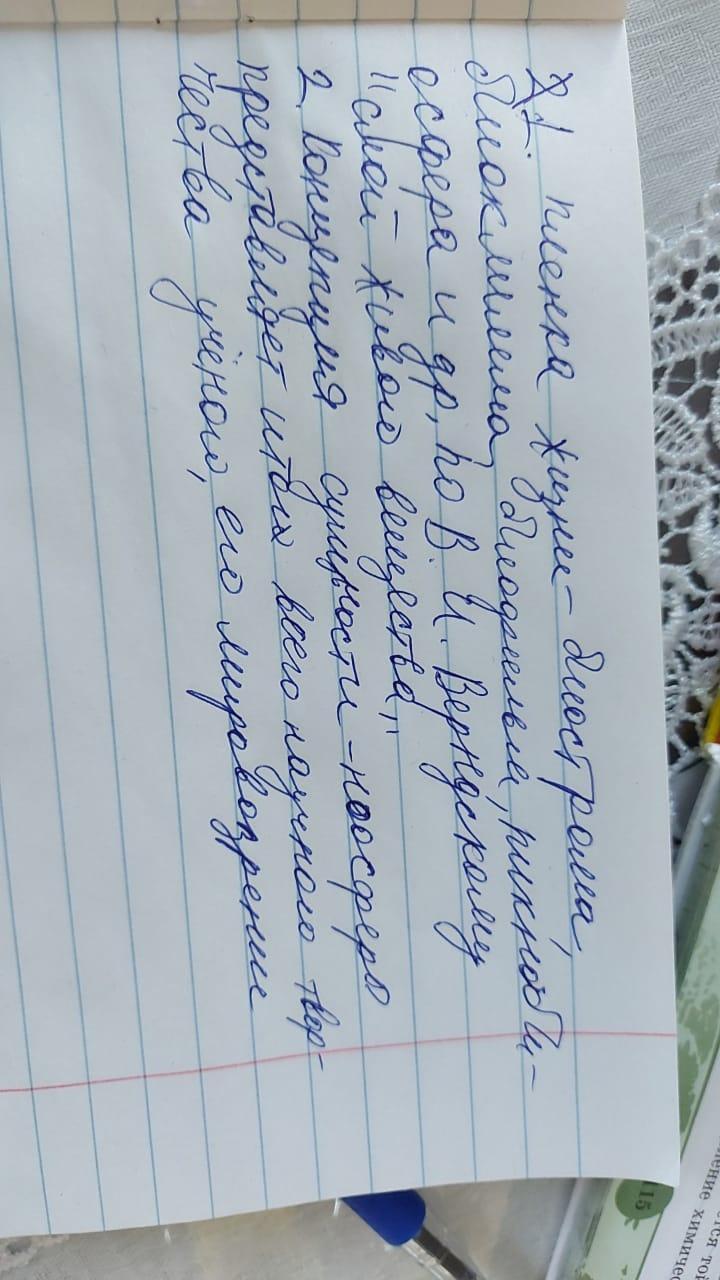 1. пленка жизни - биострома,
биоклимема, биогильем, пикноби-
осфера и др, по В. И. Вернадскому
"слой живого вещества"
2. Концепция сущности - ноосферы
представляет итогъ всего научного твор-
чества учёного, его мировоззрение
115